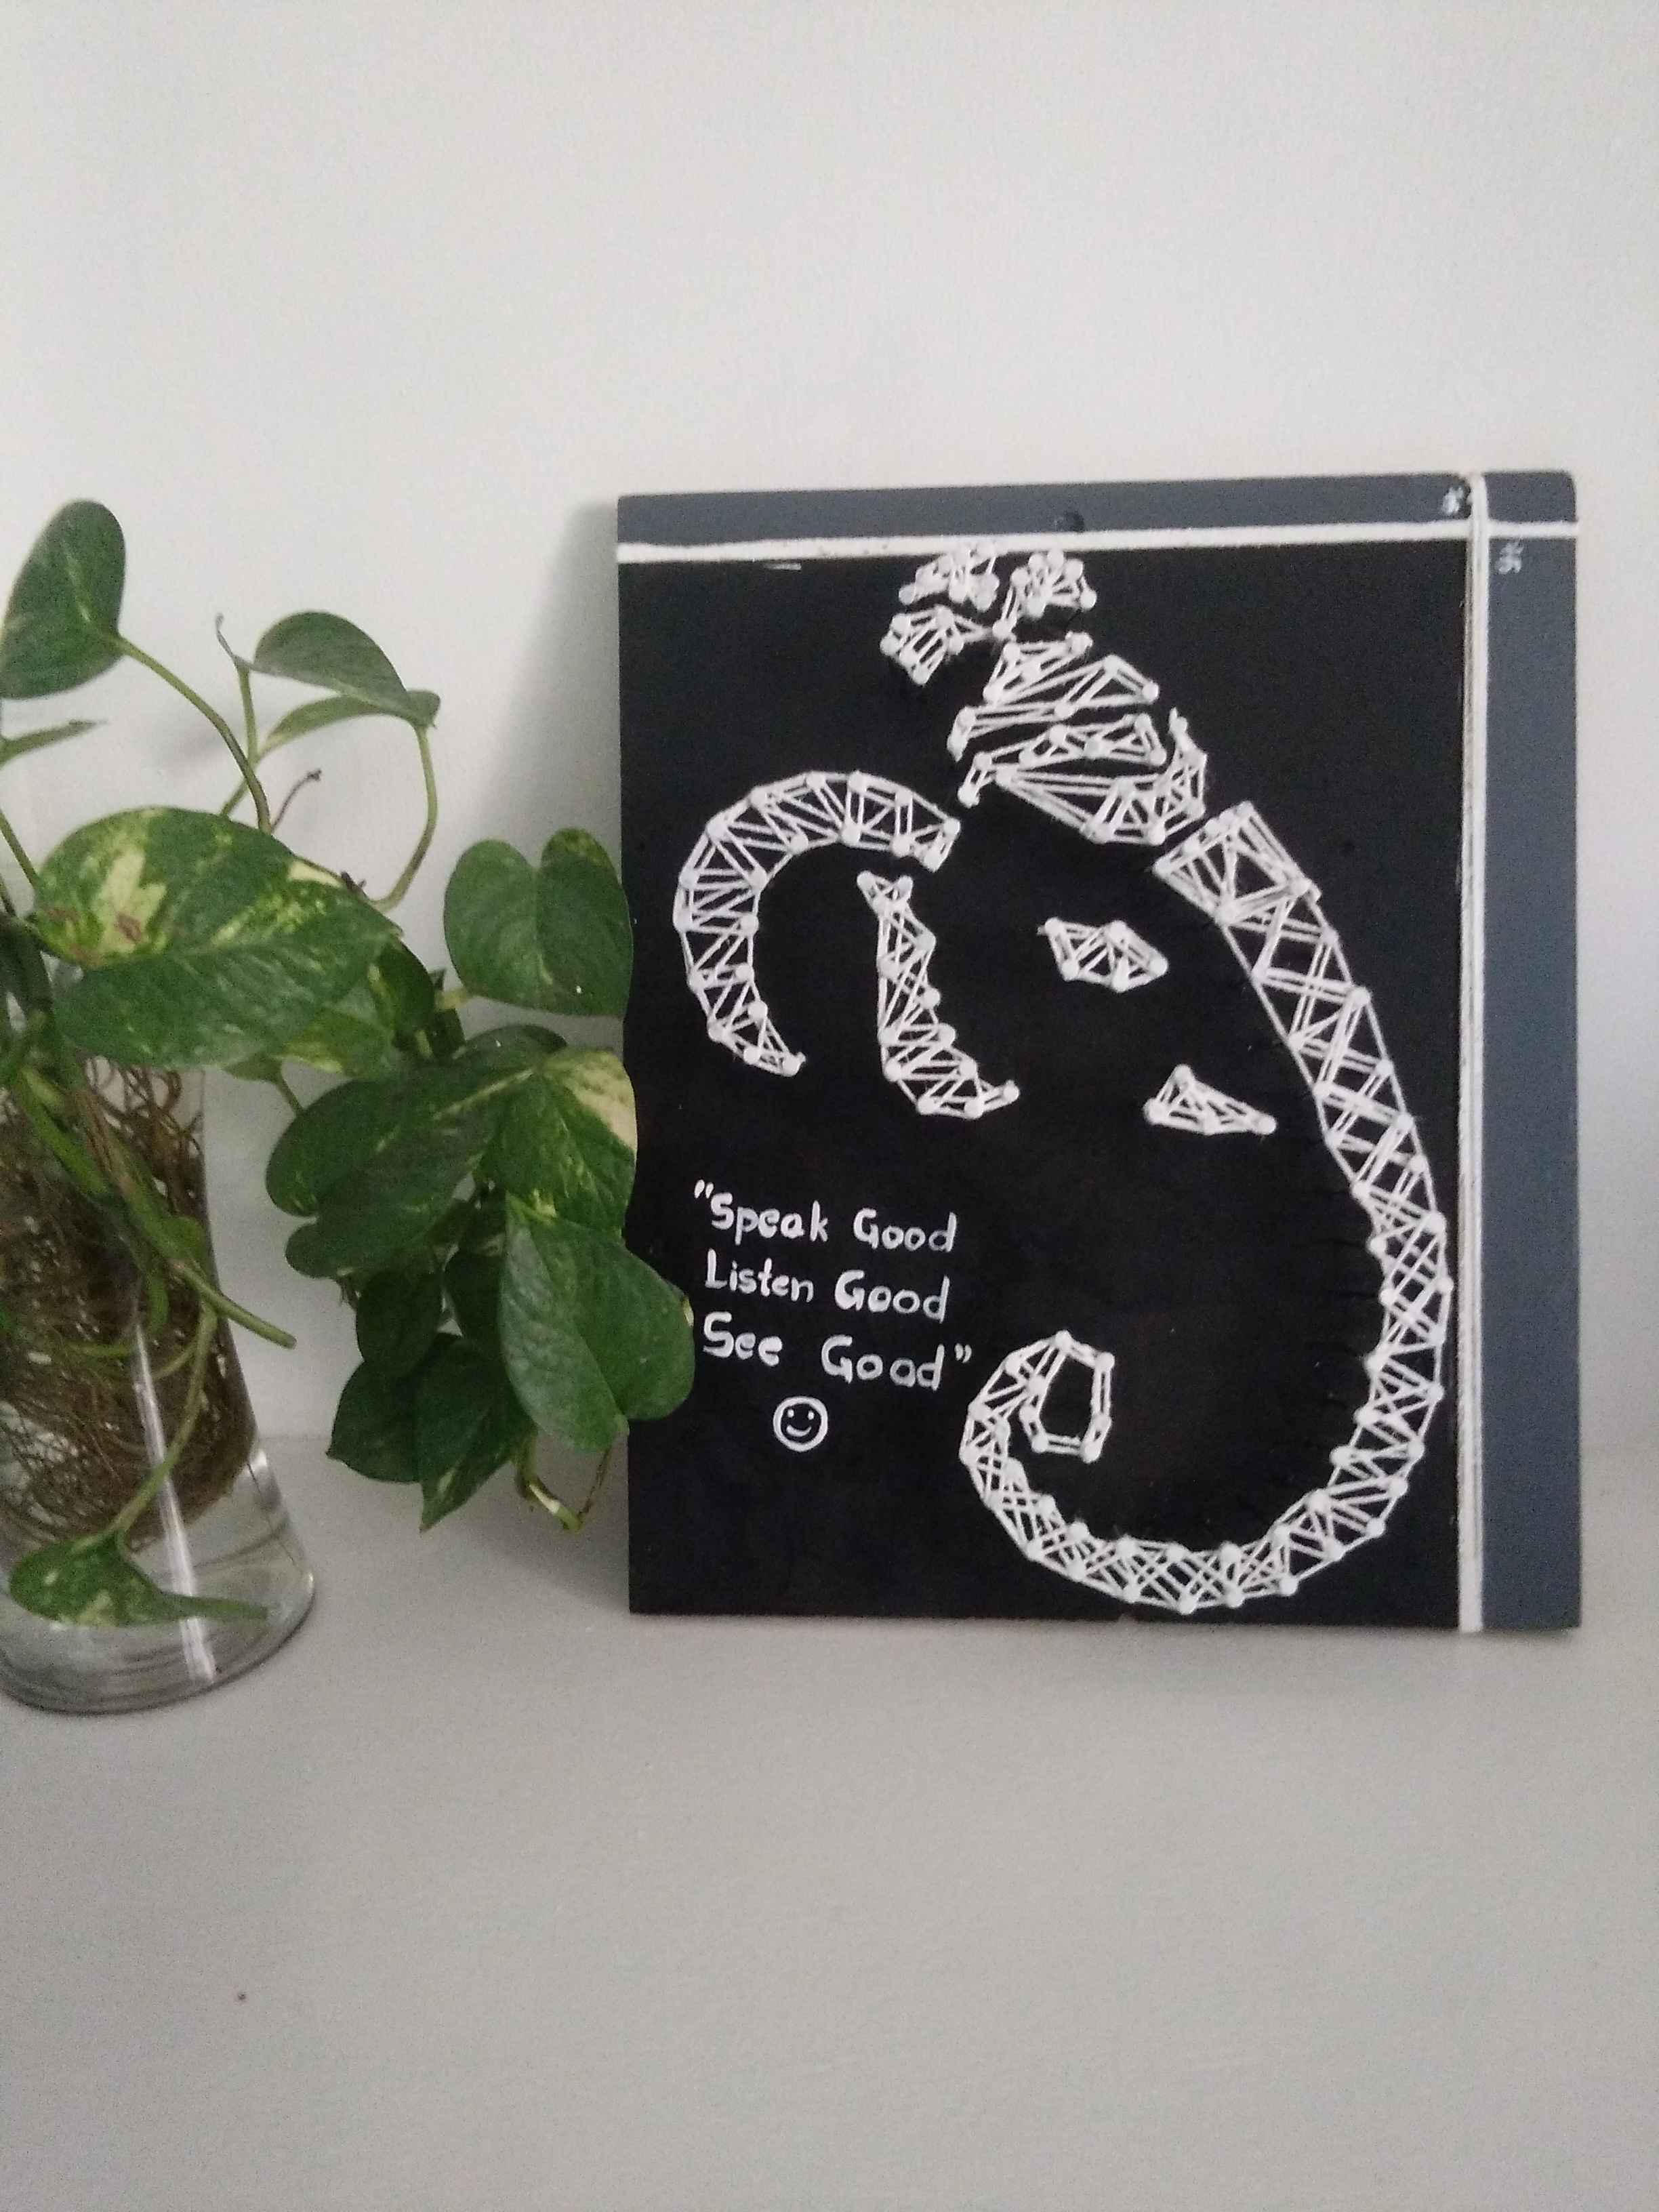 "Speak Good
Listen Good
See Good"